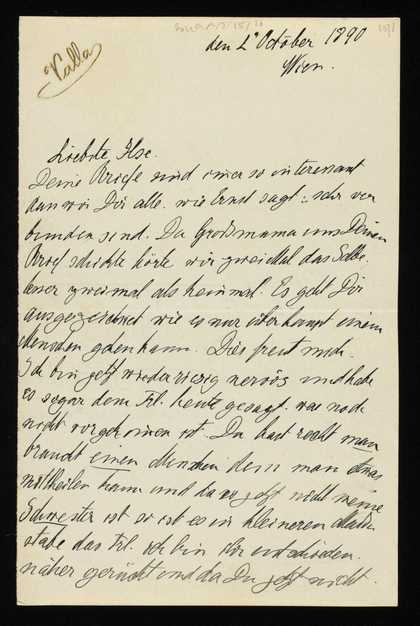 Valla
den 2t October 1890
Wien.
Liebste Ilse.
Deine Briefe sind immer so interessant
dass wir Dir alle. wie Ernst sagt: sehr ver
bunden sind. Da Großmama uns Deinen
Brief schickte hörte wir zweimal das Selbe.
besser zweimal als keinmal. Es geht Dir
ausgezeichnet wie es nur überhaupt einem
Menschen gehen kann. Dies freut mich.
Ich bin jetzt wieder riesig nervös und habe
es sogar dem Frl. heute gesagt. was noch
nicht vorgekommen ist. Du hast recht man
braucht einen Menschen dem man etwas
mittheilen kann und da wo jetzt nicht meine
Schwester ist so ist es im kleineren Maß
stabe das Frl. ich bin ihr entschieden.
näher gerückt und da Du jetzt nicht.